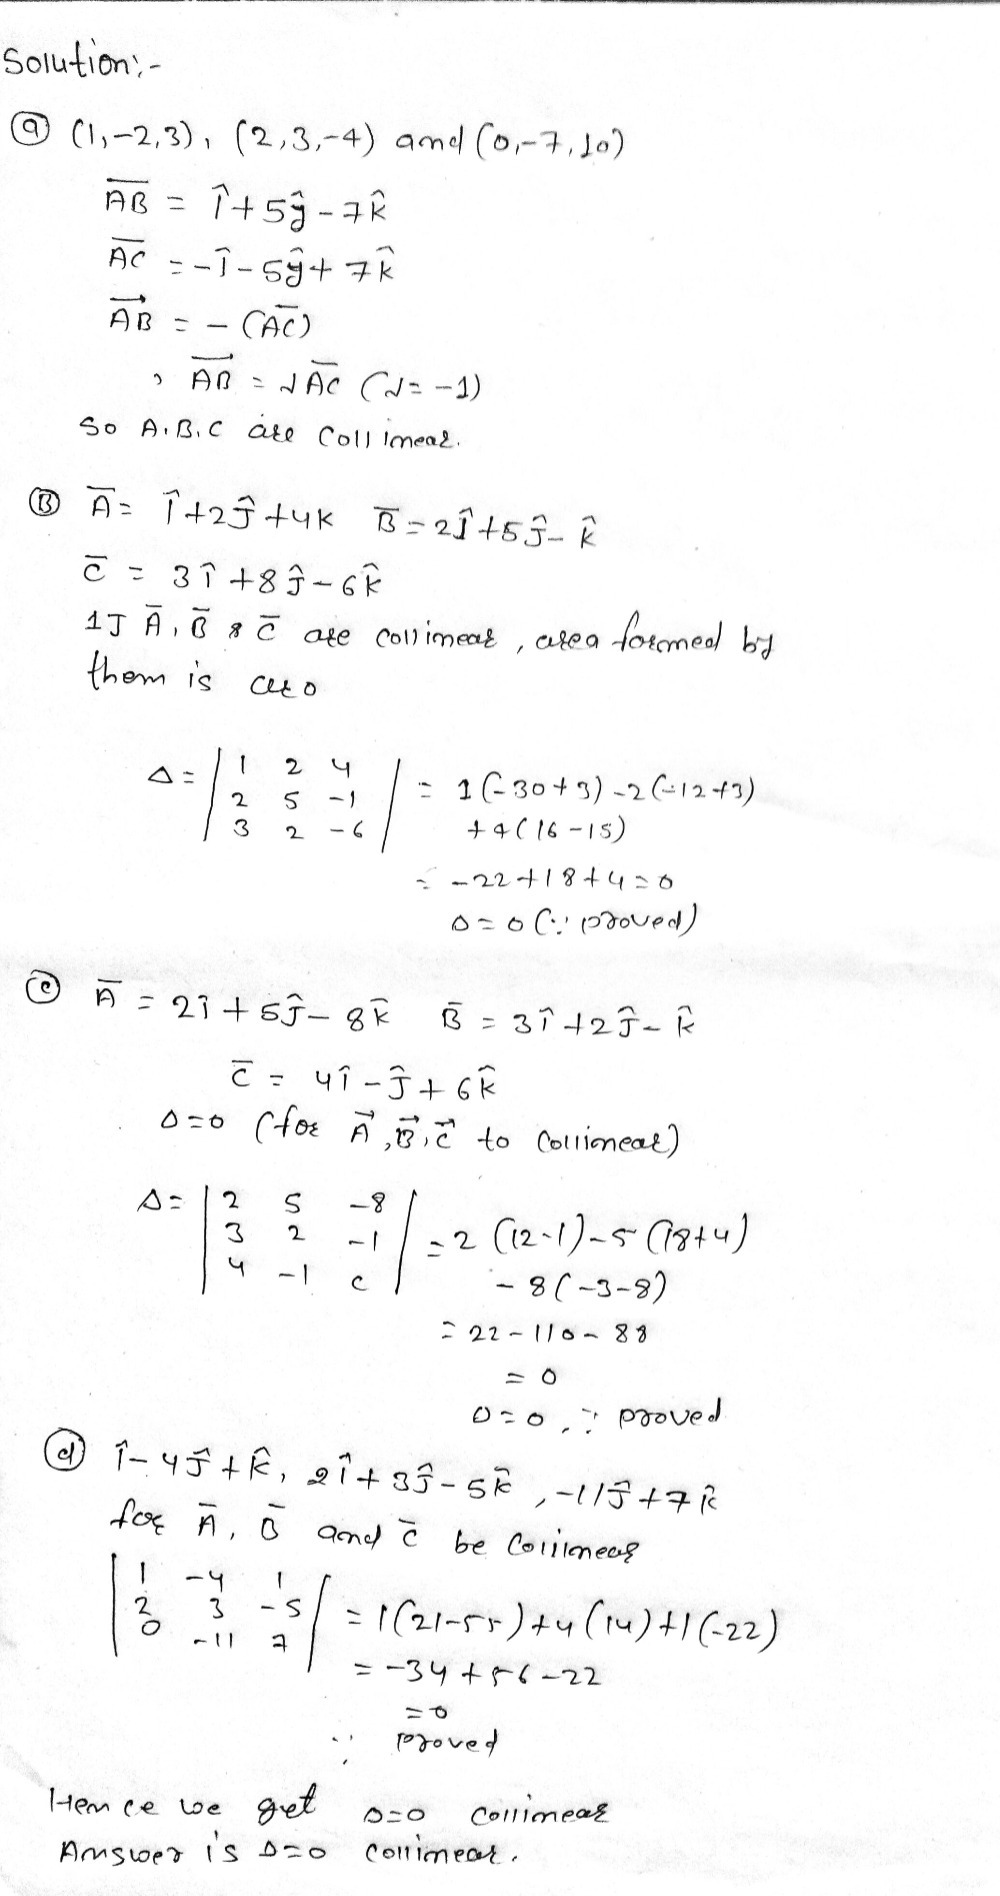 Solution:-
ⓐ (1,-2,3), (2,3,-4) and (0,-7,10)
A̅B̅ = î + 5ŷ - 7k̂
A̅C̅ = -î - 5ŷ + 7k̂
A̅B̅ = - (A̅C̅)
, A̅B̅ = λ A̅C̅ (λ = -1)
So A.B.C are Collinear.
Ⓑ A̅ = î + 2ĵ + 4k B̅ = 2ĵ + 5ĵ - k̂
C̅ = 3î + 8ĵ - 6k̂
If A̅, B̅ & C̅ are collinear, area formed by
them is zero
Δ = | 1 2 4 | = 1(-30+3) -2(-12+3)
| 2 5 -1 |
| 3 2 -6 | +4(16-15)
= -22+18+4=0
0=0 (∵ proved)
ⓒ A̅ = 2î + 5ĵ - 8k̂ B̅ = 3î + 2ĵ - k̂
C̅ = 4î - ĵ + 6k̂
Δ=0 (for A⃗, B⃗, C⃗ to Collinear)
Δ = | 2 5 -8 |
| 3 2 -1 | = 2 (12-1) -5 (18+4)
| 4 -1 c | - 8(-3-8)
= 22 - 110 - 88
= 0
0=0, ∵ proved
ⓓ î - 4ĵ + k̂, 2î + 3ĵ - 5k̂, -11ĵ + 7k̂
for A̅, B̅ and C̅ be Collinear
| 1 -4 1 |
| 2 3 -5 | = 1(21-55) +4(14) +1(-22)
| 0 -11 7 |
= -34 + 56 -22
= 0
∵ proved
Hence we get Δ=0 collinear
Answer is Δ=0 collinear.